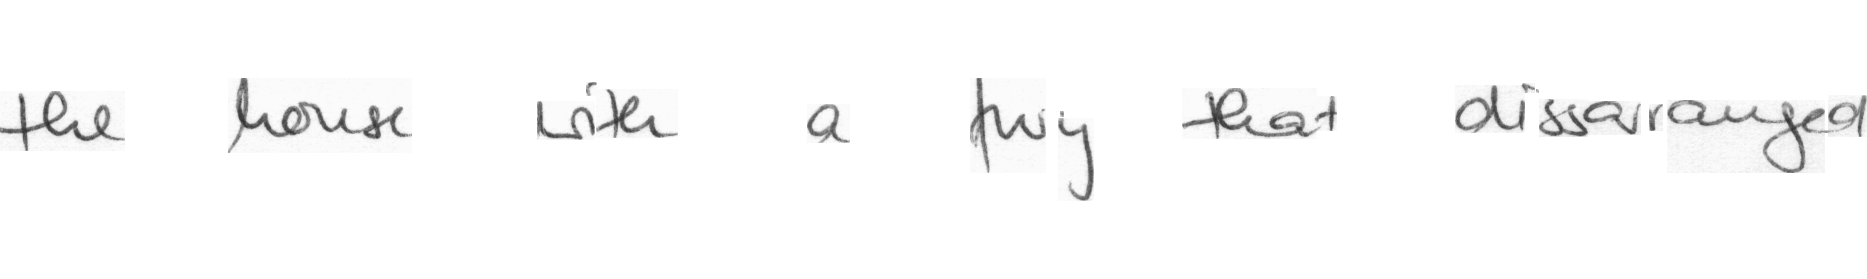 the house with a fury that dissarranged